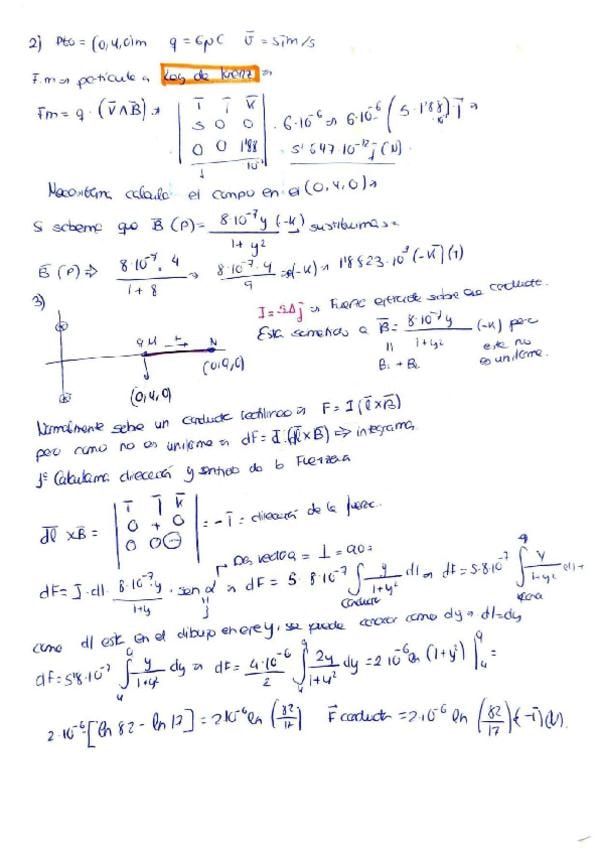 2) Pto = (0,4,0)m q = 6μC V̄ = 5im/s
F.m ⇒ particula ⇒ Ley de Lorenz ⇒
F̄m = q · (V̄∧B̄) ⇒ | ī j̄ k̄ | 5 0 0 | 0 0 1'88 10⁻⁷ | · 6·10⁻⁶ ⇒ 6·10⁻⁶ (5·1'88) j̄ ⇒
5'647·10⁻¹² j (N).
Necesitamos calcular el campo en el (0,4,0) ⇒
Si sabemos que B̄ (P) = 8·10⁻⁷y / 1+y² (-k) sustituimos ⇒
B̄ (P) ⇒ 8·10⁻⁷·4 / 1+8 ⇒ 8·10⁻⁷·4 / 9 ⇒ (-k) ⇒ 1'8823·10⁻⁷ (-k̄) (T)
3)
I = 5A j̄ ⇒ Fuerza ejercida sobre ese conductor.
Esta sometido a B̄ = 8·10⁻⁷y / 1+y² (-k) pero
B₁ + B₂ este no es uniforme.
M N
(0,4,0) (0,9,0)
Normalmente sobre un conductor rectilineo ⇒ F = I (l̄×B̄)
pero como no es uniforme ⇒ dF = I·(dl̄×B̄) ⇒ integramos
1º Calculamos dirección y sentido de la Fuerza
dl̄ × B̄ = | ī j̄ k̄ | 0 + 0 | 0 0 - | = -ī = dirección de la fuerza.
Dos vectores = ⊥ = 90º
dF = I·dl· 8·10⁻⁷y / 1+y · sen α ⇒ dF = 5·8·10⁻⁷ ∫ conductor y / 1+y² dl ⇒ dF = 5·8·10⁻⁷ ∫ y / 1+y² dl ⇒
como dl está en el dibujo en eje y, se puede conocer como dy ⇒ dl = dy
dF = 5·8·10⁻⁷ ∫₄⁹ y / 1+y² dy ⇒ dF = 4·10⁻⁶ / 2 ∫₄⁹ 2y / 1+y² dy = 2·10⁻⁶ ln (1+y²) |₄⁹ =
2·10⁻⁶ [ln 82 - ln 17] = 2·10⁻⁶ ln (82/17) F̄ conductor = 2·10⁻⁶ ln (82/17) (-ī) (N).